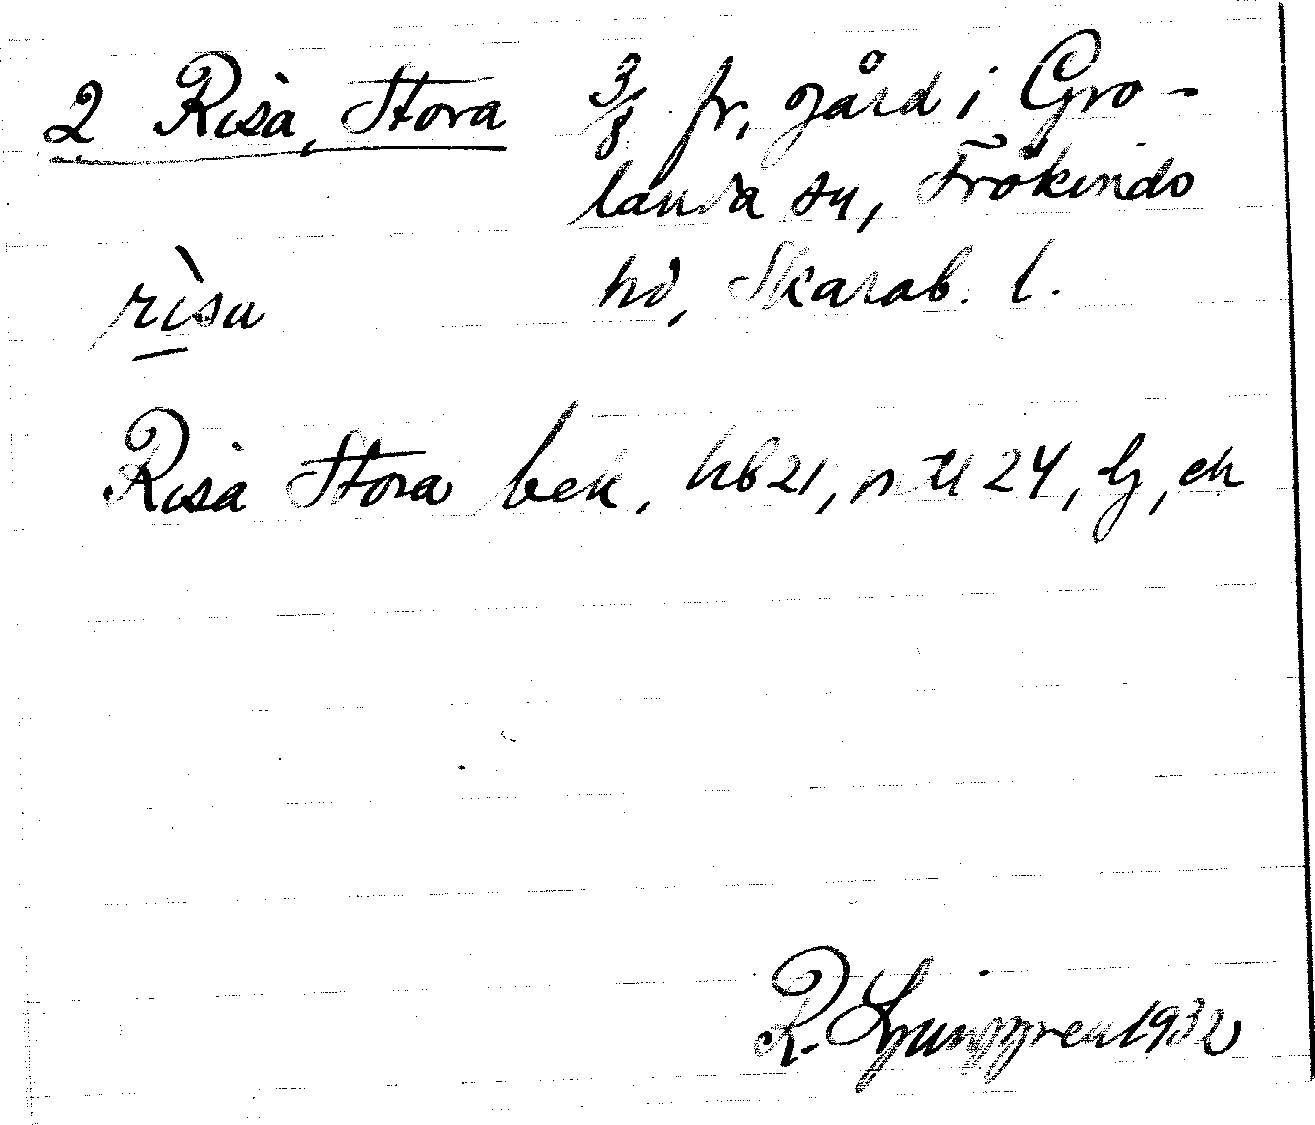 2 Risa, Stora 3/8 fr, gård i Gro-
landa sn, Frökinds
hd, Skarab. l.
rìsa
Risa Stora bek, hb 21, 24, lj, ek
R. Ljunggren 1932